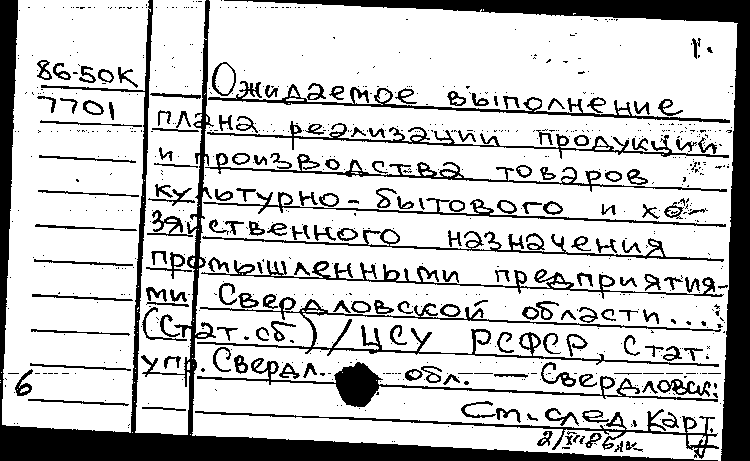 1.
86-50К
7701
Ожидаемое выполнение
плана реализации продукции
и производства товаров
культурно-бытового и хо-
зяйственного назначения
промышленными предприятия-
ми Свердловской области...:
(Стат. сб.) / ЦСУ РСФСР, Стат.
упр. Свердл. обл. — Свердловск:
6
См. след. карт.